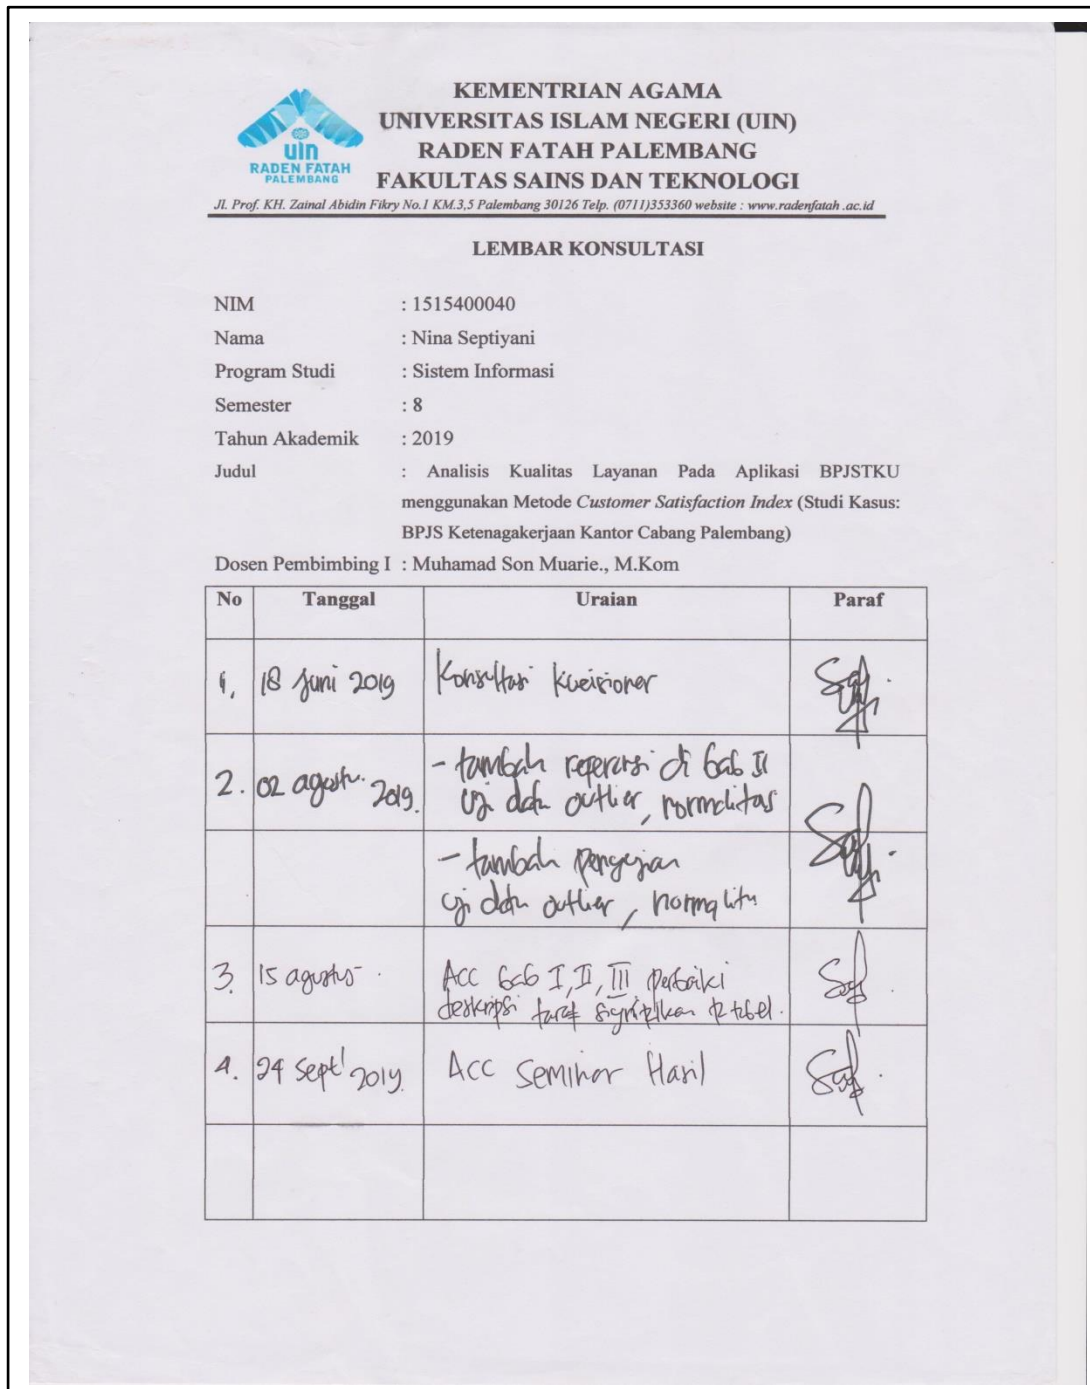 uin
RADEN FATAH
PALEMBANG
KEMENTRIAN AGAMA
UNIVERSITAS ISLAM NEGERI (UIN)
RADEN FATAH PALEMBANG
FAKULTAS SAINS DAN TEKNOLOGI
Jl. Prof. KH. Zainal Abidin Fikry No.1 KM.3,5 Palembang 30126 Telp. (0711)353360 website : www.radenfatah .ac.id
LEMBAR KONSULTASI
NIM : 1515400040
Nama : Nina Septiyani
Program Studi : Sistem Informasi
Semester : 8
Tahun Akademik : 2019
Judul : Analisis Kualitas Layanan Pada Aplikasi BPJSTKU
menggunakan Metode Customer Satisfaction Index (Studi Kasus:
BPJS Ketenagakerjaan Kantor Cabang Palembang)
Dosen Pembimbing I : Muhamad Son Muarie., M.Kom
No Tanggal Uraian Paraf
1. 18 Juni 2019 Konsultasi kueisioner
2. 02 agustu. 2019. - tambah reperensi di bab II
uji data outlier, normalitas
- tambah pengujian
uji data outlier, normalitas
3. 15 agustus Acc bab I, II, III perbaiki
deskripsi taraf signipikan r tabel.
4. 24 Sept' 2019. Acc Seminar Hasil